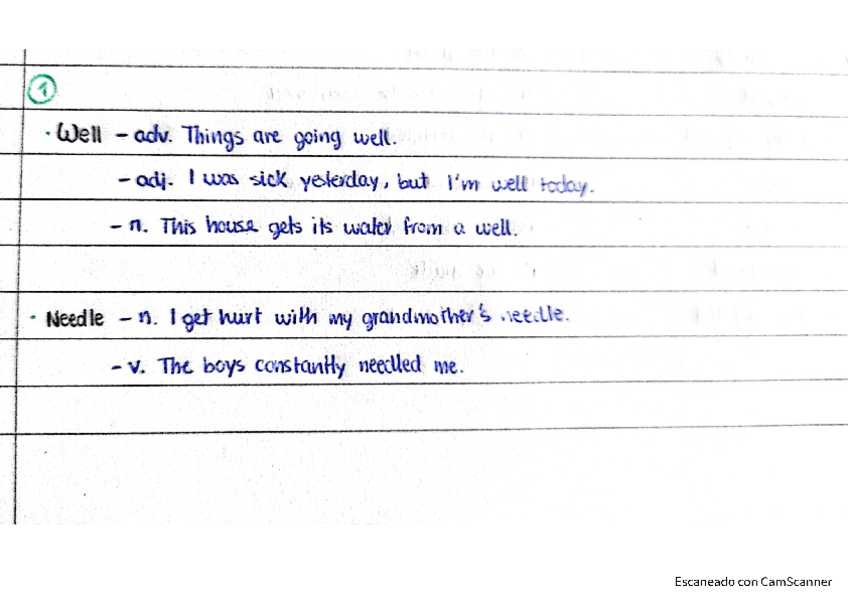 1
· Well – adv. Things are going well.
– adj. I was sick yesterday, but I'm well today.
– n. This house gets its water from a well.
· Needle – n. I get hurt with my grandmother's needle.
– v. The boys constantly needled me.
Escaneado con CamScanner